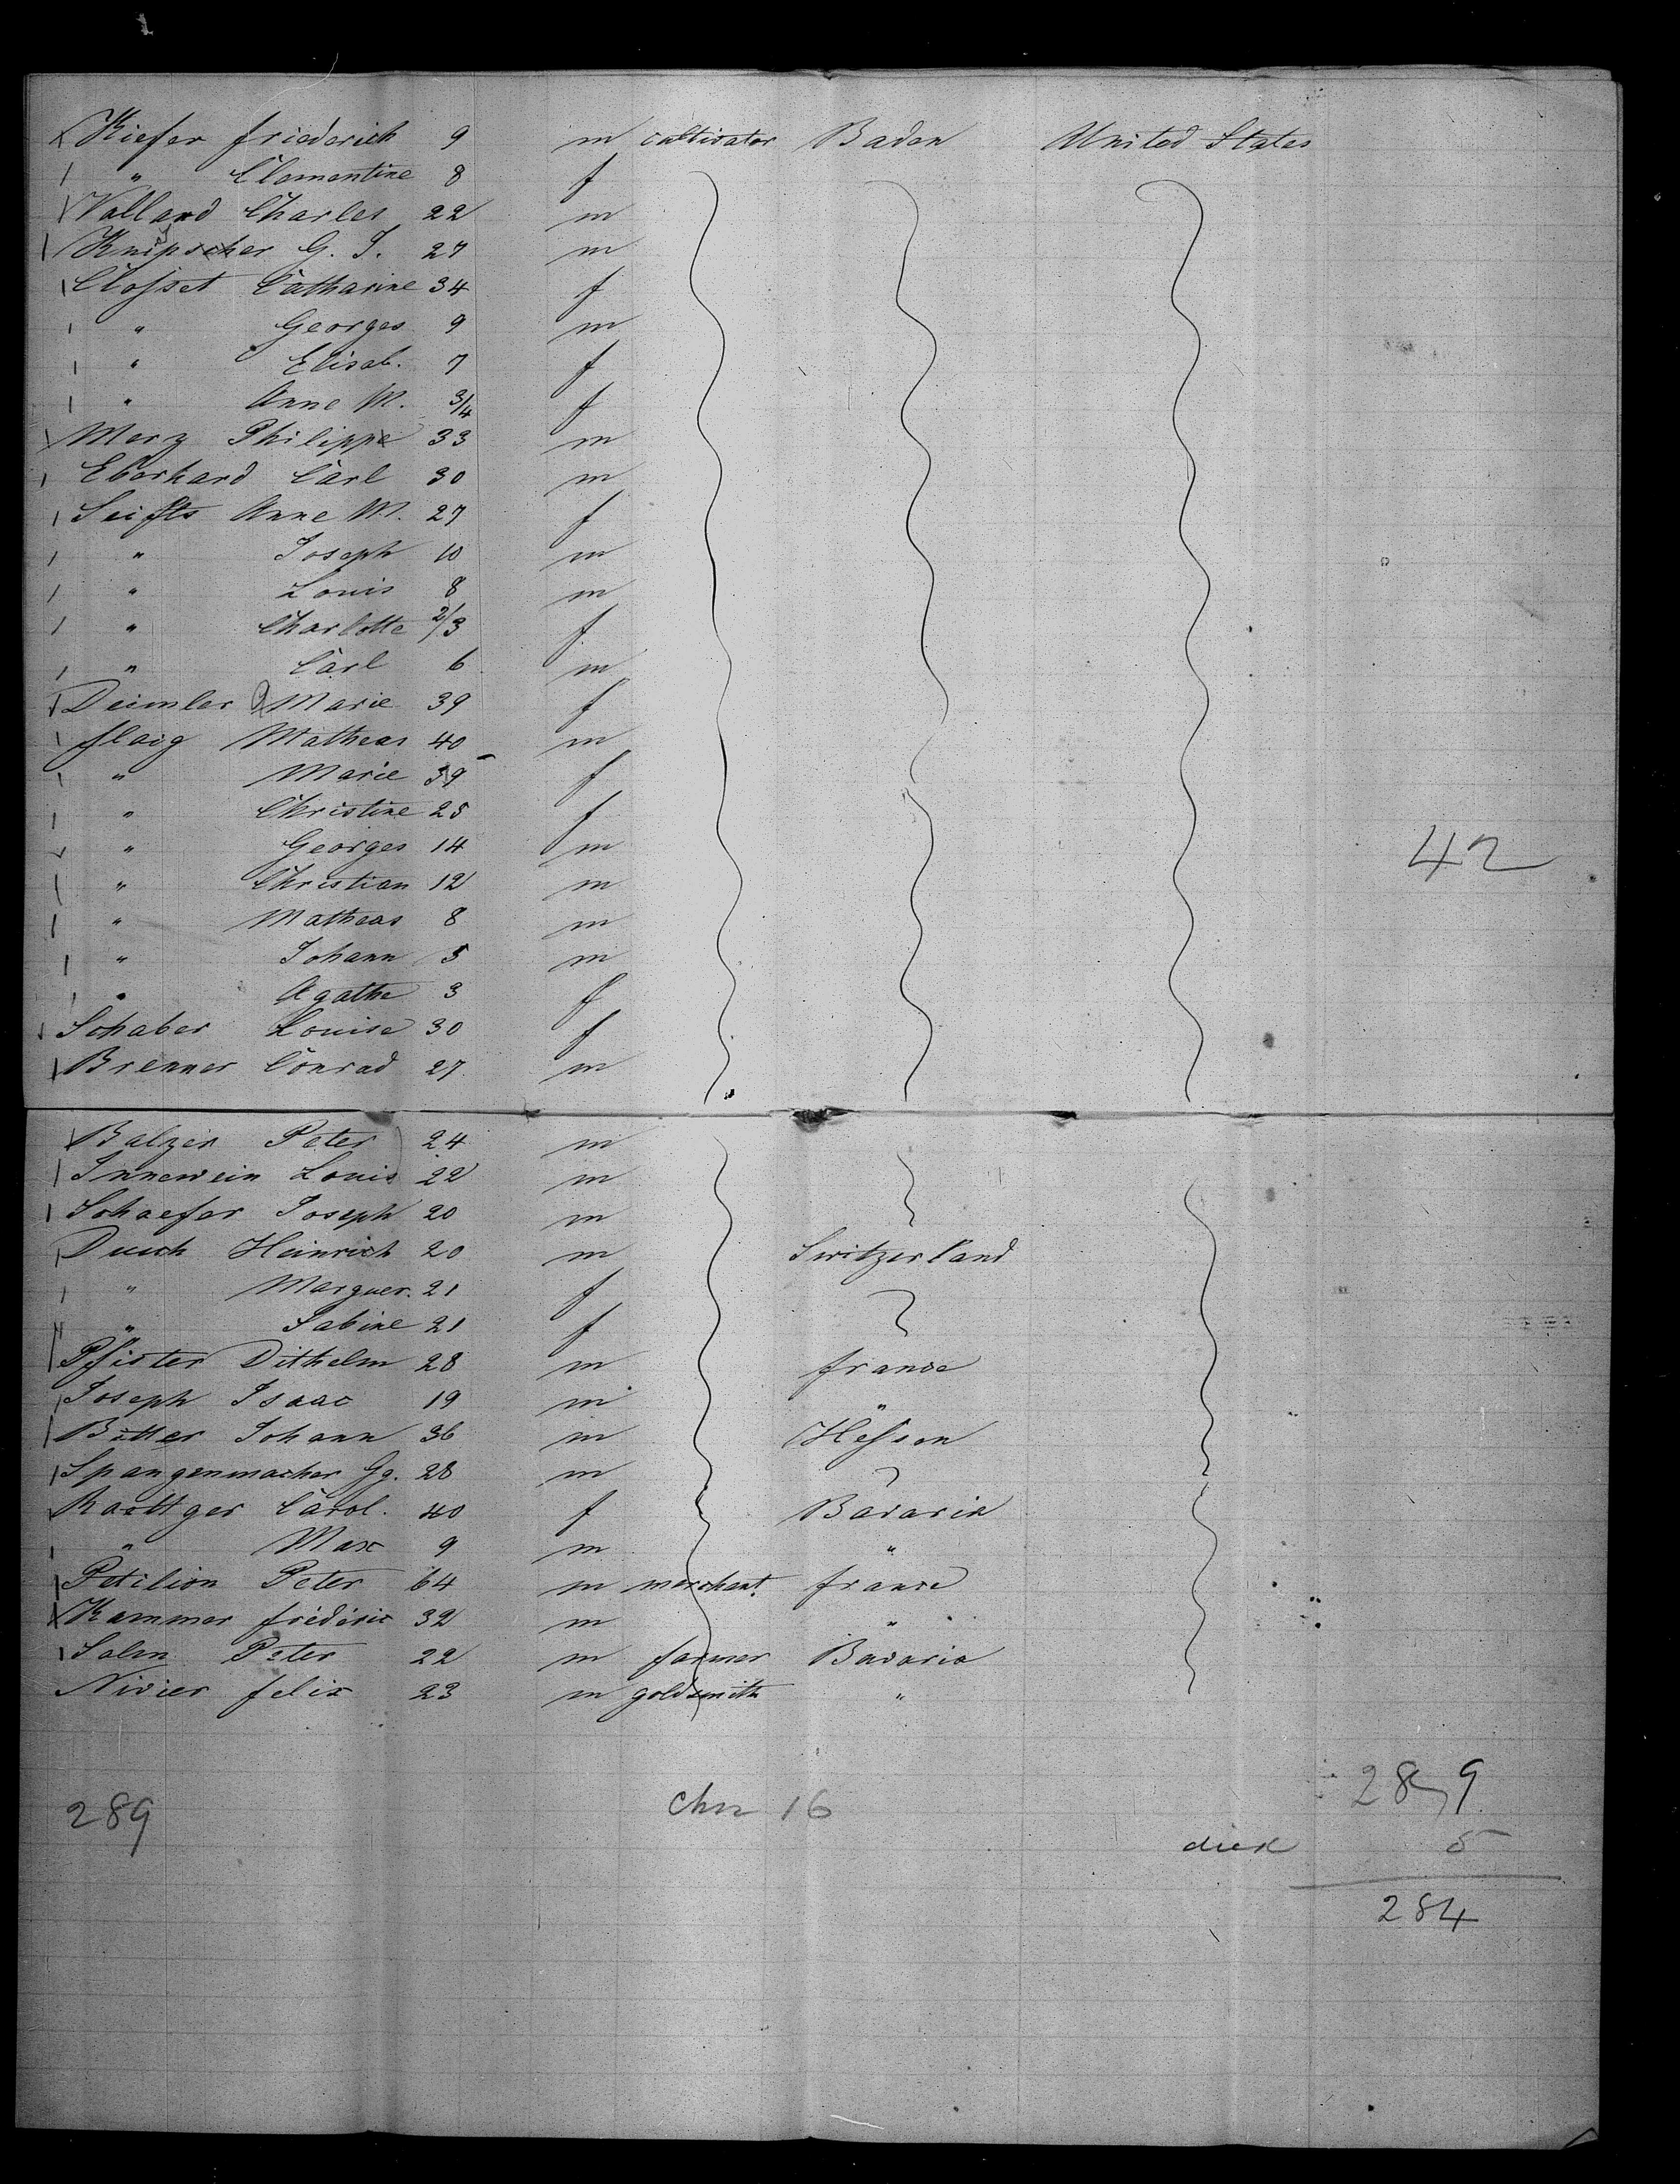 Kiefer friederich 9 m cultivator Baden United States
" Clementine 8 f
Valland Charles 22 m
Knipscher G. J. 27 m
Closset Catharine 34 f
" Georges 9 m
" Elisab. 7 f
" Anne M. 3/4 f
Merz Philippe 33 m
Eberhard Carl 30 m
Seifts Anne M. 27 f
" Joseph 10 m
" Louis 8 m
" Charlotte 2/3 f
" Carl 6 m
Deimler Marie 39 f
flaig Matheas 40 m
" Marie 39 f
" Christine 25 f
" Georges 14 m 42
" Christian 12 m
" Matheas 8 m
" Johann 5 m
" Agathe 3 f
Schaber Louise 30 f
Brenner Conrad 27 m
Balzer Peter 24 m
Innewein Louis 22 m
Schaefer Joseph 20 m
Dusch Heinrich 20 m Switzerland
" Marguer. 21 f
" Sabine 21 f
Pfister Dithelm 28 m france
Joseph Isaac 19 m "
Bitter Johann 36 m Hessen
Spangenmacher Gg. 28 m
Raettger Carol. 40 f Bavaria
" Max 9 m "
Petilion Peter 64 m merchant france
Kammer fréderic 32 m "
Salm Peter 22 m farmer Bavaria
Nivier felix 23 m goldsmith "
289 chn 16 289
died 5
284